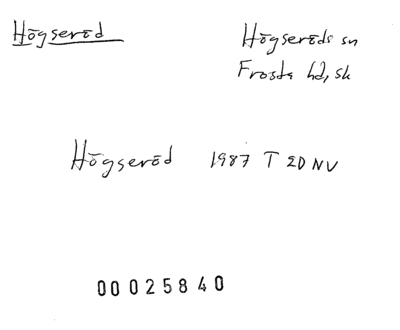 Högseröd
Högseröds sn
Frosta hd, sk
Högseröd 1987 T 2D NV
00025840